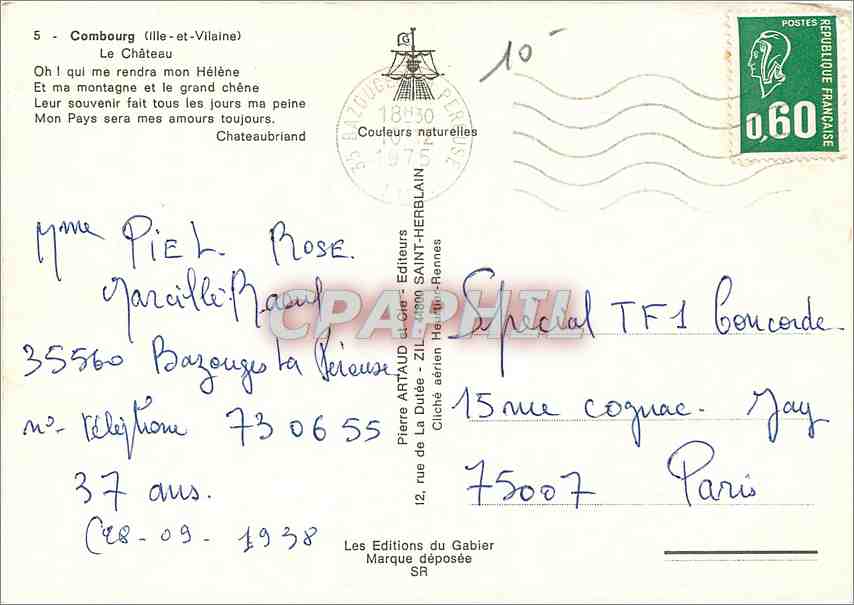 5 - Combourg (Ille-et-Vilaine)
Le Château
Oh ! qui me rendra mon Hélène
Et ma montagne et le grand chêne
Leur souvenir fait tous les jours ma peine
Mon Pays sera mes amours toujours.
Chateaubriand
10-
POSTES
REPUBLIQUE FRANÇAISE
0,60
35 BAZOUGES PEROUSE
18H30
1975
Couleurs naturelles
Mme PIEL ROSE.
Marcillé-Raoul
35560 Bazouges La Pérouse
no- Téléphone 73 06 55
37 ans.
(28-09-1938
Pierre ARTAUD et Cie - Editeurs
12, rue de La Dutée - ZIL - 44800 SAINT-HERBLAIN
Cliché aérien Heurtier-Rennes
CPAPHIL
Spécial TF1 Concorde
15 rue cognac- Jay
75007 Paris
Les Editions du Gabier
Marque déposée
SR